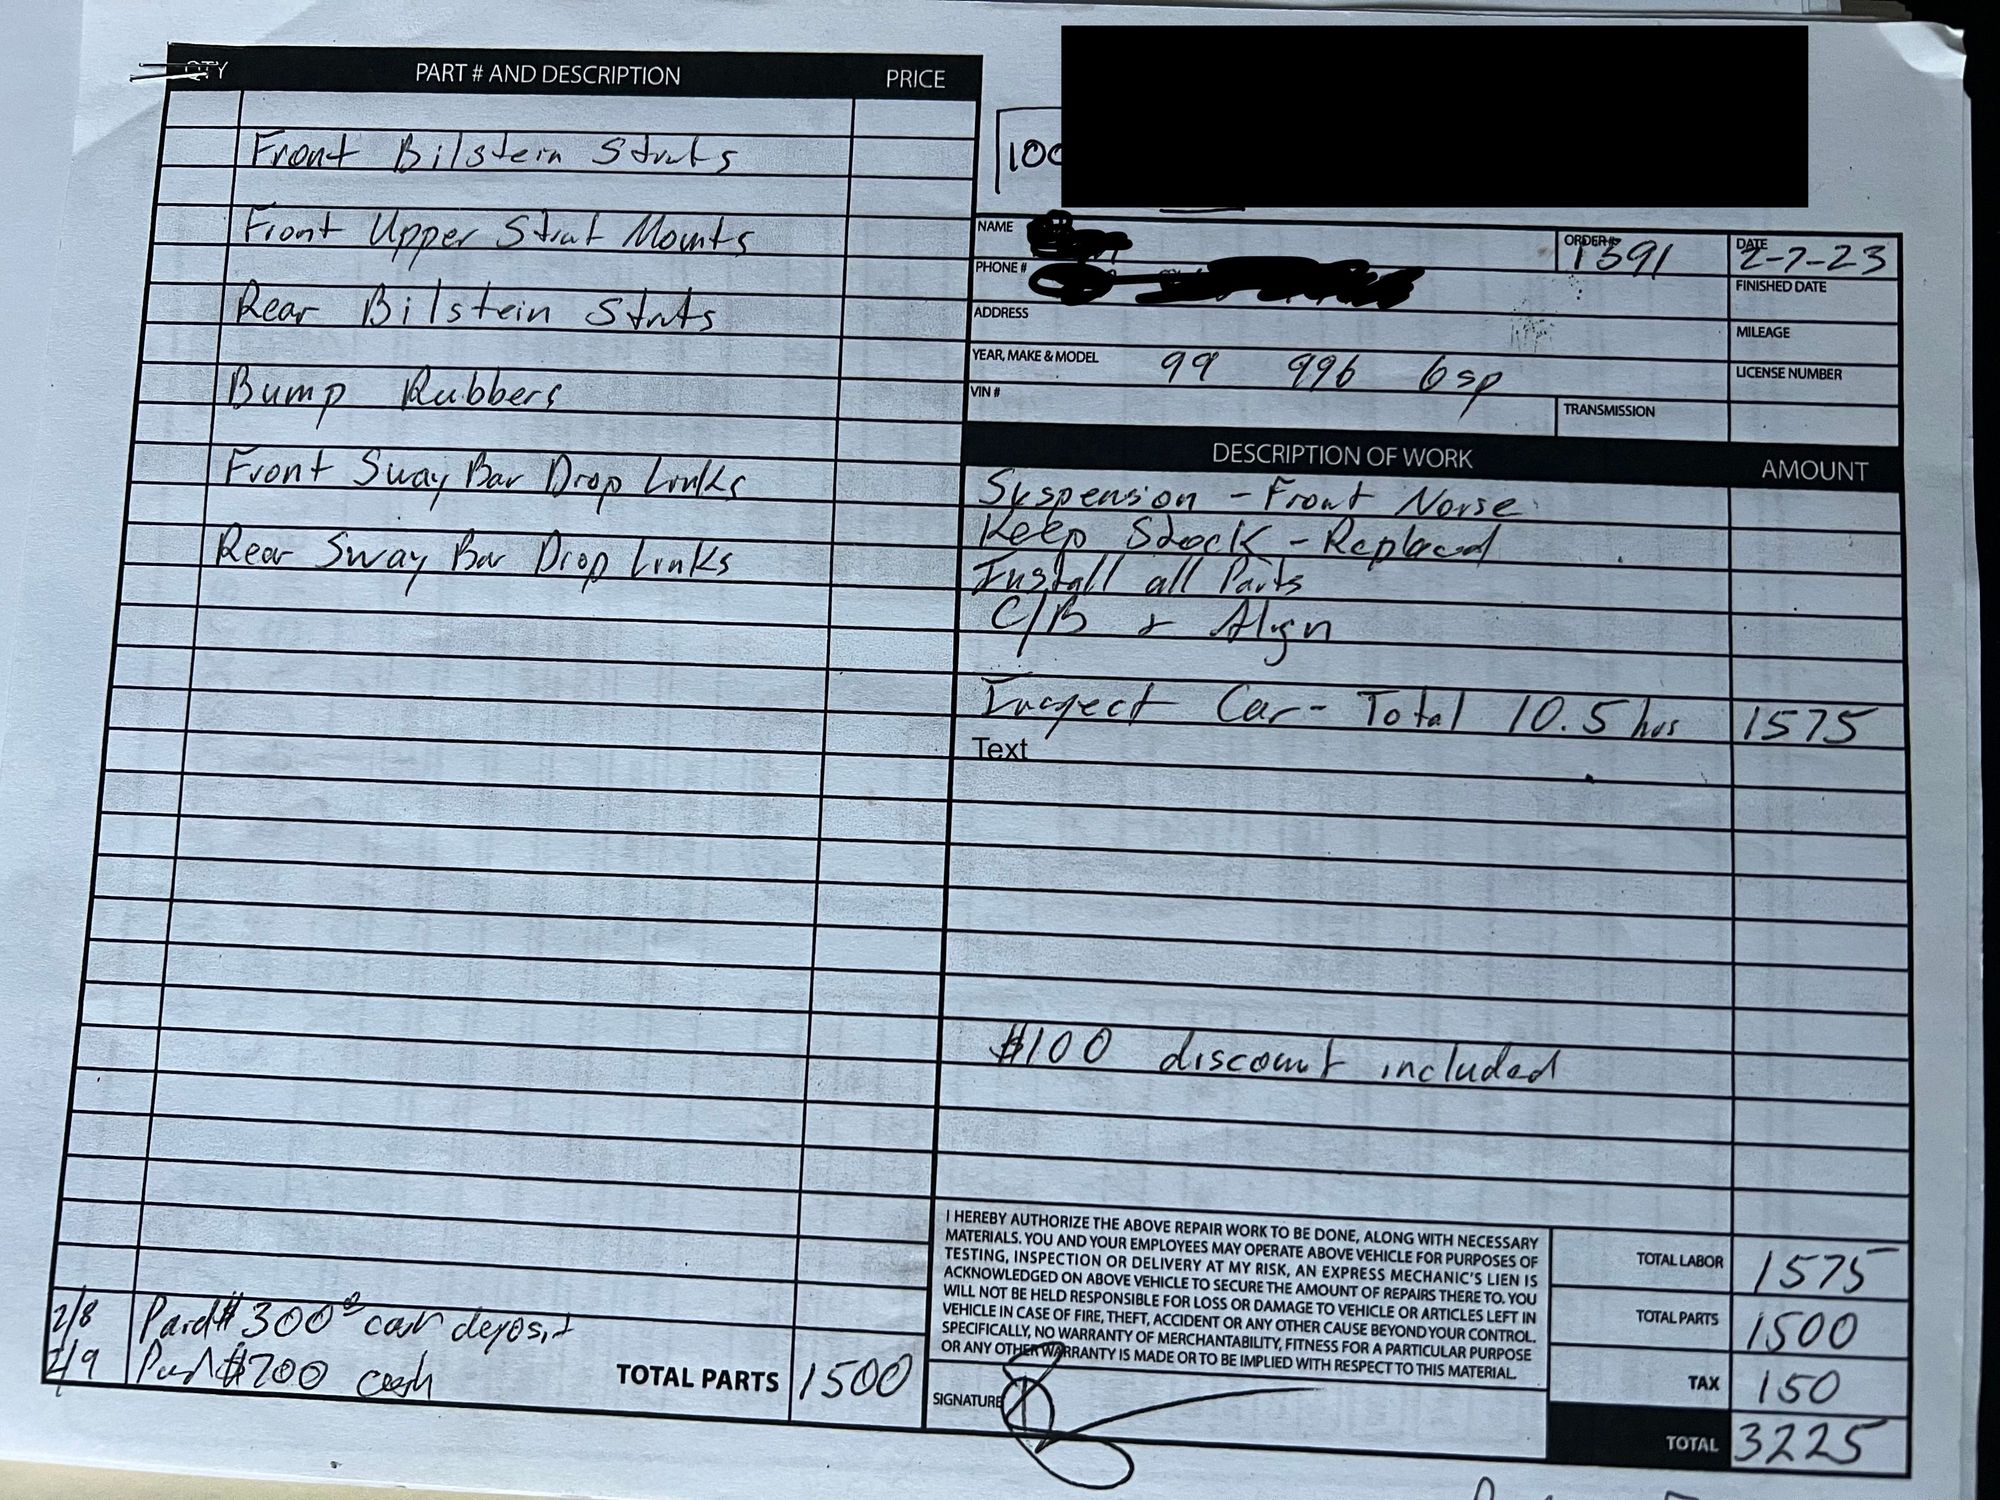 QTY PART # AND DESCRIPTION PRICE
Front Bilstein Struts
Front Upper Strut Mounts
Rear Bilstein Struts
Bump Rubbers
Front Sway Bar Drop Links
Rear Sway Bar Drop Links
2/8 Paid $300 cash deposit
2/9 Paid $700 cash
TOTAL PARTS 1500
100
NAME
ORDER# 1391
DATE 2-7-23
PHONE #
FINISHED DATE
ADDRESS
MILEAGE
YEAR, MAKE & MODEL 99 996 6sp
LICENSE NUMBER
VIN #
TRANSMISSION
DESCRIPTION OF WORK AMOUNT
Suspension - Front Noise
Keep Stock - Replaced
Install all Parts
C/B & Align
Inspect Car - Total 10.5 hrs 1575
Text
$100 discount included
I HEREBY AUTHORIZE THE ABOVE REPAIR WORK TO BE DONE, ALONG WITH NECESSARY
MATERIALS. YOU AND YOUR EMPLOYEES MAY OPERATE ABOVE VEHICLE FOR PURPOSES OF
TESTING, INSPECTION OR DELIVERY AT MY RISK, AN EXPRESS MECHANIC'S LIEN IS
ACKNOWLEDGED ON ABOVE VEHICLE TO SECURE THE AMOUNT OF REPAIRS THERE TO. YOU
WILL NOT BE HELD RESPONSIBLE FOR LOSS OR DAMAGE TO VEHICLE OR ARTICLES LEFT IN
VEHICLE IN CASE OF FIRE, THEFT, ACCIDENT OR ANY OTHER CAUSE BEYOND YOUR CONTROL.
SPECIFICALLY, NO WARRANTY OF MERCHANTABILITY, FITNESS FOR A PARTICULAR PURPOSE
OR ANY OTHER WARRANTY IS MADE OR TO BE IMPLIED WITH RESPECT TO THIS MATERIAL.
SIGNATURE
TOTAL LABOR 1575
TOTAL PARTS 1500
TAX 150
TOTAL 3225